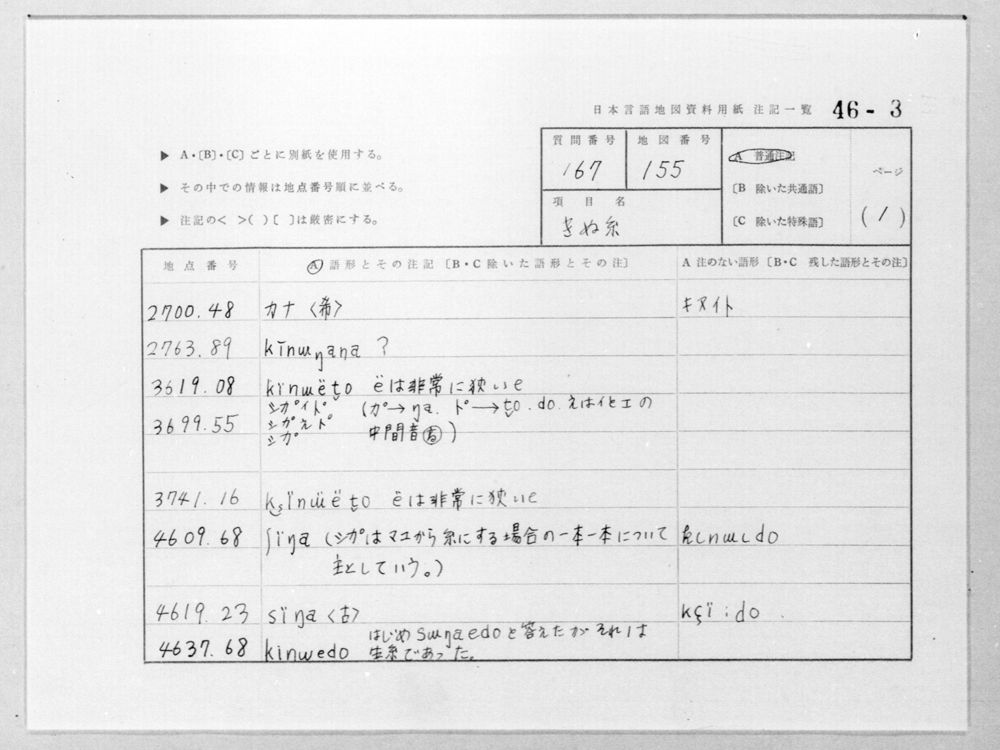 日本言語地図資料用紙 注記一覧 46-3
▶ A・〔B〕・〔C〕ごとに別紙を使用する。
▶ その中での情報は地点番号順に並べる。
▶ 注記の< >( )[ ]は厳密にする。
質問番号 地図番号
167 155
項目名
きぬ糸
A 普通注記
〔B 除いた共通語〕
〔C 除いた特殊語〕
ページ
(1)
地点番号 A 語形とその注記〔B・C 除いた語形とその注〕 A 注のない語形〔B・C 残した語形とその注〕
2700.48 カナ〈希〉 キヌイト
2763.89 kïnɯŋaŋa ?
3619.08 kïnɯëto ëは非常に狭いe
3699.55 シガイド (ガ→ŋa. ド→to.do. えはイとエの
シガえド 中間音)
シガ
3741.16 kşïnɯ̈ëto ëは非常に狭いe
4609.68 ʃiŋa (シガはマユから糸にする場合の一本一本について
主としていう。)
4619.23 sïŋa〈古〉 kçï:do
4637.68 kinɯedo はじめsɯŋaedoと答えたがそれは
生糸であった。